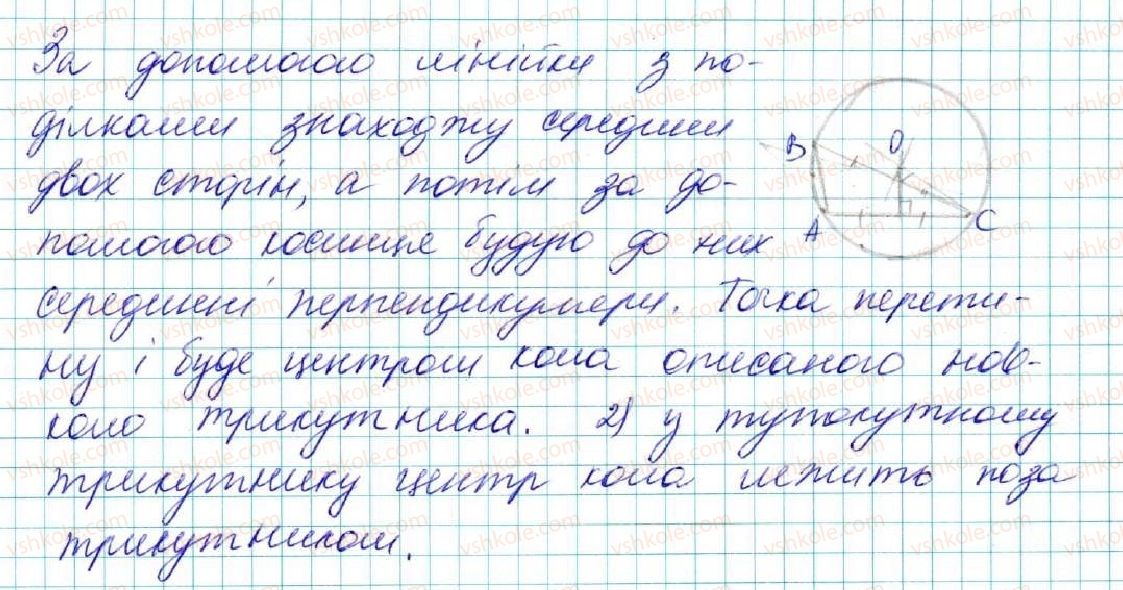 За допомогою лінійки з по-
ділками знаходжу середини
двох сторін, а потім за до-
помогою косинця будую до них
серединні перпендикуляри. Точка перети-
ну і буде центром кола описаного нав-
коло трикутника. 2) у тупокутному
трикутнику центр кола лежить поза
трикутником.
B O
A C
vshkole.com